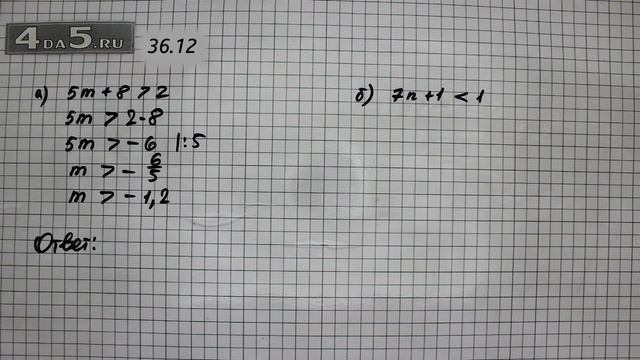 4DA5.RU
36.12
а) 5m + 8 > 2
5m > 2 - 8
5m > - 6 |:5
m > - 6/5
m > - 1,2
Ответ:
б) 7n + 1 < 1